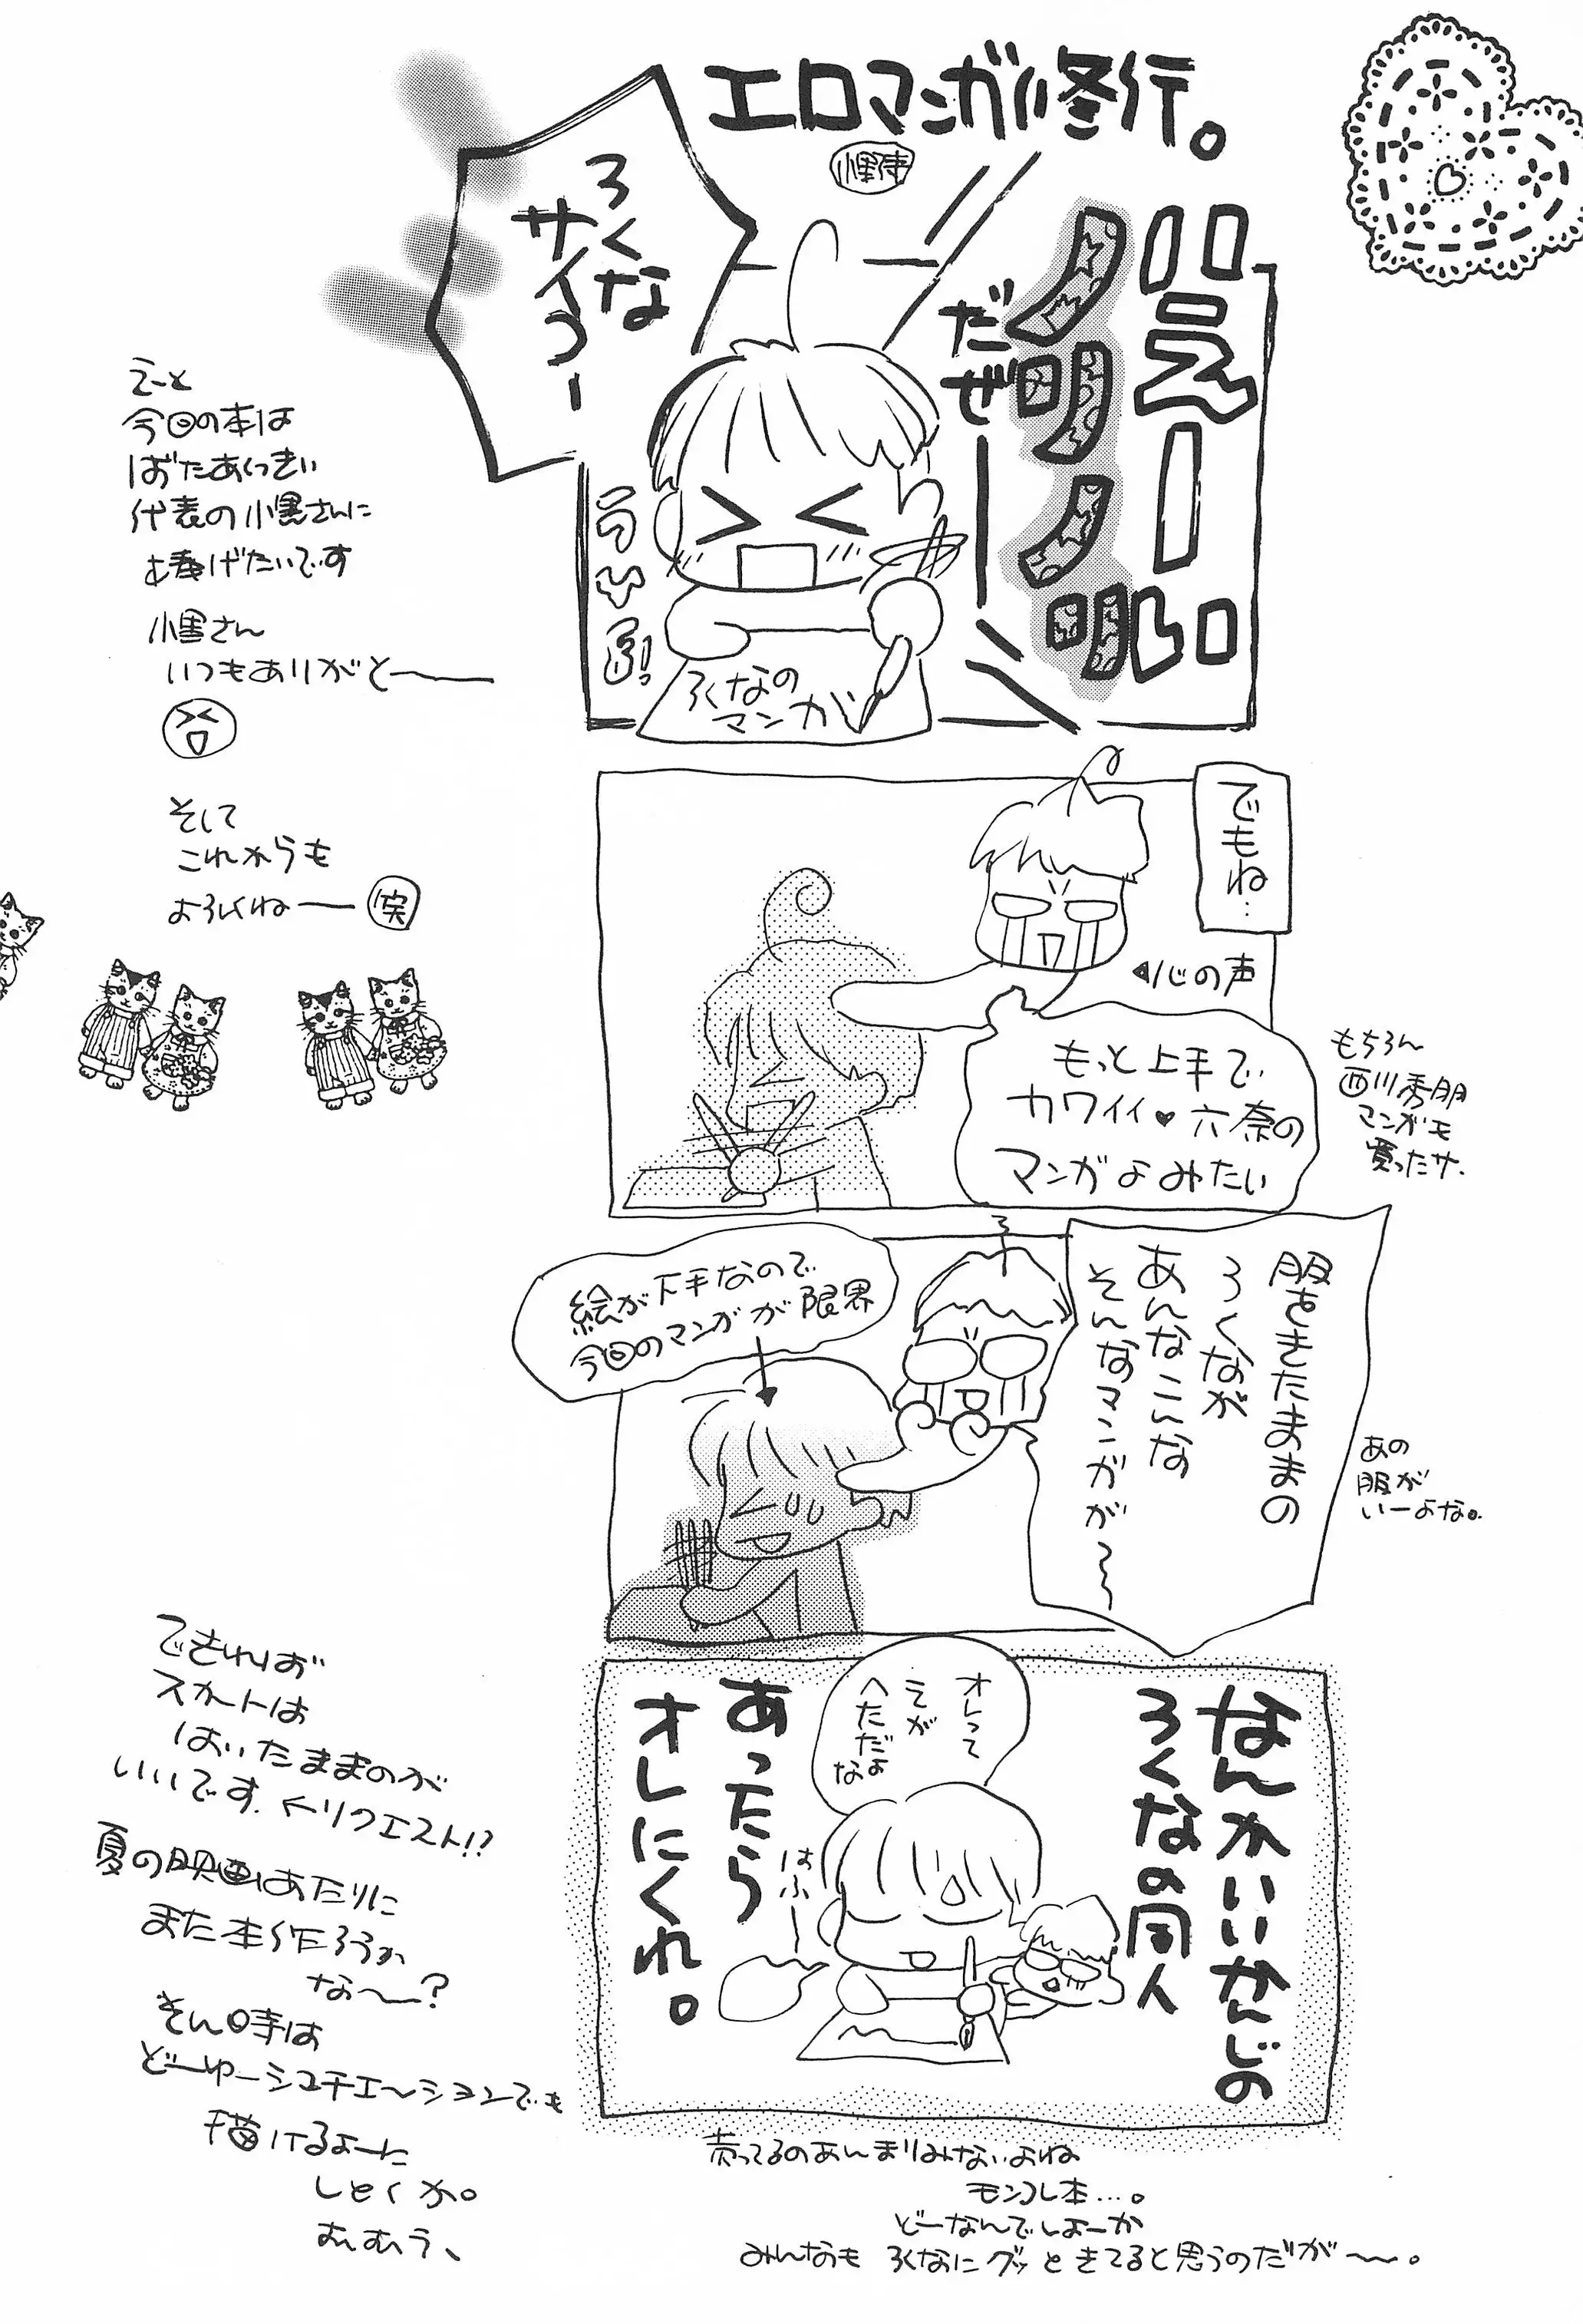 エロマンガ修行。
ろくな
サイコー
だぜ
ろくなの
マンガ
えーと
今回の本は
ばたあくっきい
代表の小黒さんに
捧げたいです
小黒さん
いつもありがとーーー
そして
これからも
よろしくねーー(笑)
でもね…
◀心の声
もっと上手で
カワイイ♥六奈の
マンガよみたい
もちろん
西川秀明
マンガモ
買ったサ.
服をきたままの
ろくなが
あんなこんな
そんなマンガが〜〜
絵が下手なので
今回のマンガが限界
あの
服が
いーよな。
なんかいいかんじの
ろくなの同人
あったら
オレにくれ。
オレって
えが
へただよ
な
はふー
できれば
スカートは
はいたままのが
いいです. ←リクエスト!?
夏の映画あたりに
また本作ろうか
な〜?
そん時は
どーゆーシュチエーションでも
描けるよーに
しとくか。
むぅむぅ、
売ってるのあんまりみないよね
モンコレ本…。
どーなんでしょーか
みんなも ろくなにグッときてると思うのだが〜。